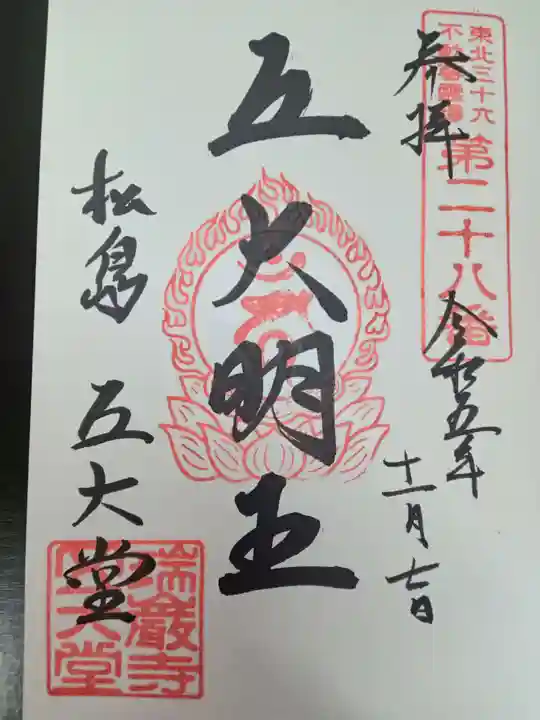 東北三十六
不動尊霊場
第二十八番
奉拝
令和五年
十一月七日
五大明王
松島 五大堂
瑞巌寺
五大堂